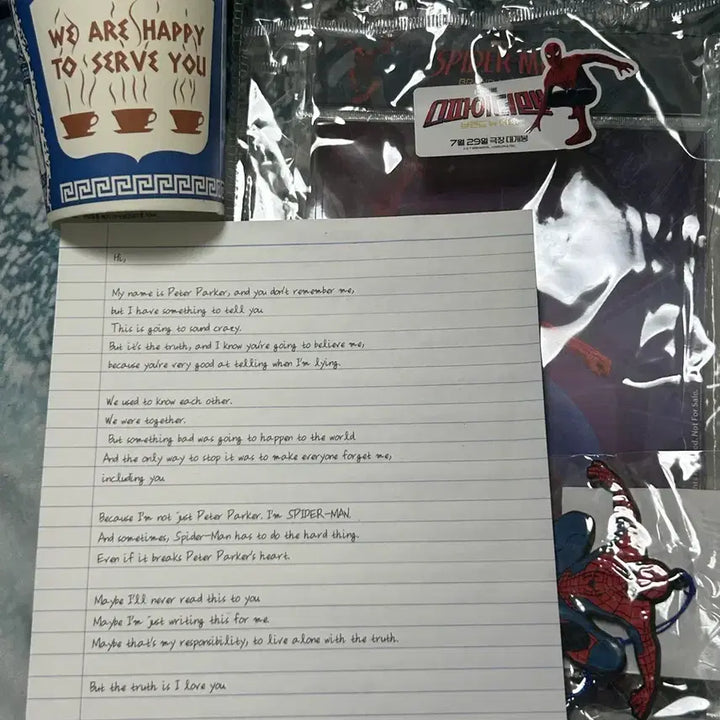 WE ARE HAPPY
TO SERVE YOU
SPIDER-M
7월 29일 극장 대개봉
Hi,
My name is Peter Parker, and you don't remember me,
but I have something to tell you
This is going to sound crazy.
But it's the truth, and I know you're going to believe me,
because you're very good at telling when I'm lying.
We used to know each other.
We were together.
But something bad was going to happen to the world
And the only way to stop it was to make everyone forget me,
including you
Because I'm not just Peter Parker. I'm SPIDER-MAN.
And sometimes, Spider-Man has to do the hard thing.
Even if it breaks Peter Parker's heart.
Maybe I'll never read this to you
Maybe I'm just writing this for me.
Maybe that's my responsibility, to live alone with the truth.
But the truth is I love you
Not For Sale.